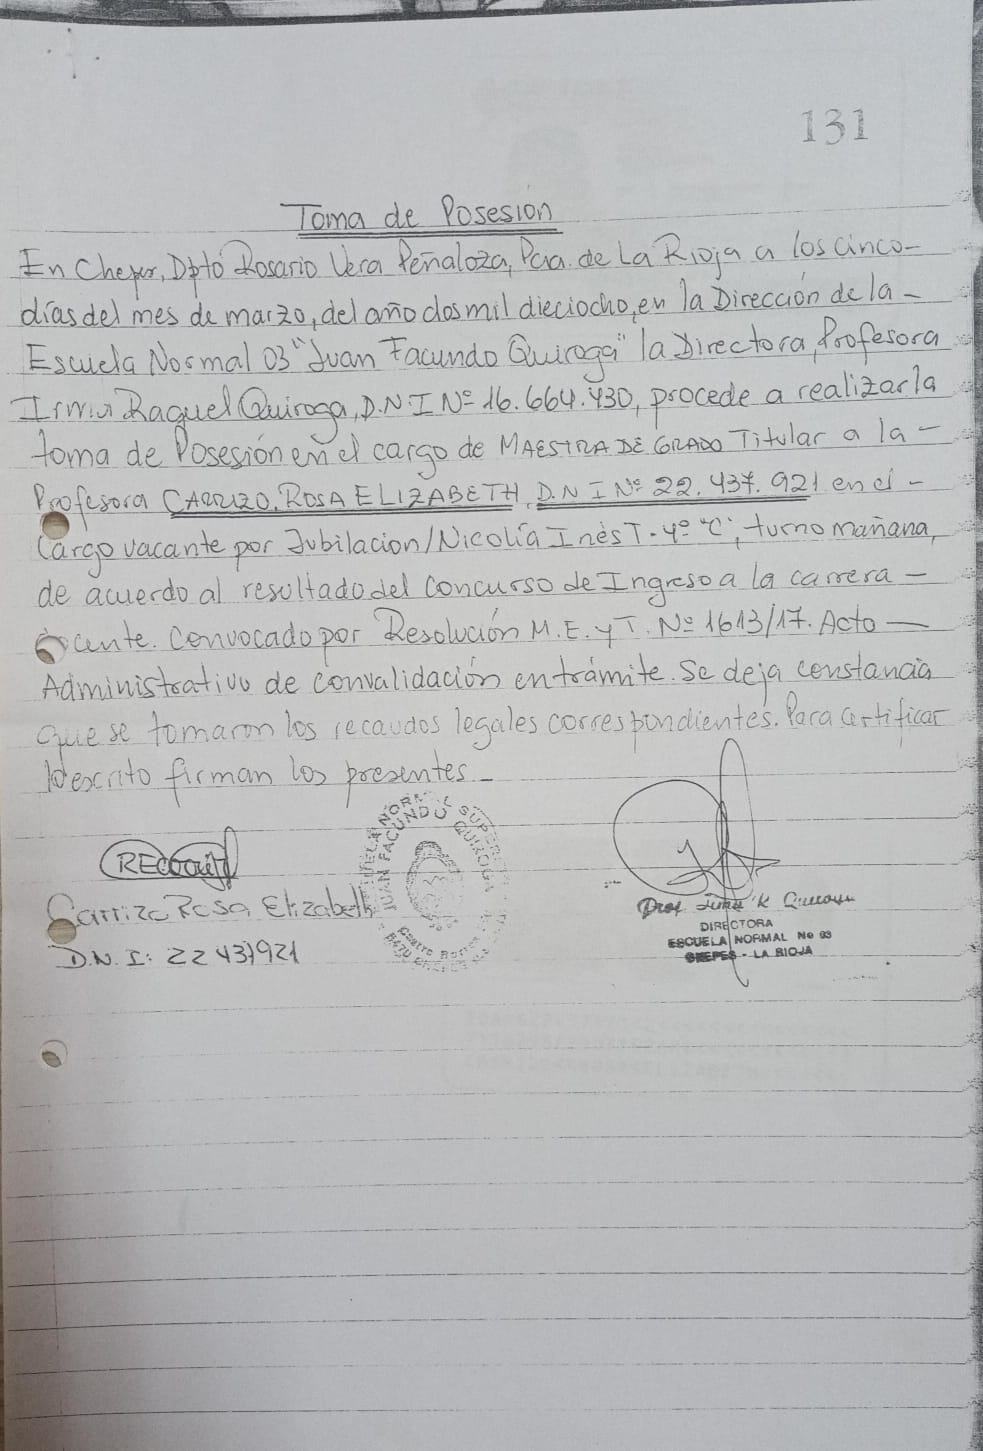 131
Toma de Posesión
En Chepes, Dpto Rosario Vera Peñaloza, Pcia. de La Rioja a los cinco-
días del mes de marzo, del año dos mil dieciocho, en la Dirección de la -
Escuela Normal 03 "Juan Facundo Quiroga" la Directora, Profesora
Irma Raquel Quiroga, D.N.I Nº 16.664.430, procede a realizar la
toma de Posesión en el cargo de MAESTRA DE GRADO Titular a la -
Profesora CARRIZO, ROSA ELIZABETH, D.N.I Nº 22.437.921 en el -
Cargo vacante por Jubilacion/Nicolía Inés T. 4º "C", turno mañana,
de acuerdo al resultado del Concurso de Ingreso a la carrera -
docente. Convocado por Resolución M.E. y T. Nº 1613/17. Acto -
Administrativo de convalidación en trámite. Se deja constancia
que se tomaron los recaudos legales correspondientes. Para Certificar
lo escrito firman los presentes. -
Carrizo Rosa Elizabeth
D.N.I: 22437921
ESCUELA NORMAL SUPERIOR
JUAN FACUNDO QUIROGA
DIRECTORA
ESCUELA NORMAL No 03
CHEPES - LA RIOJA